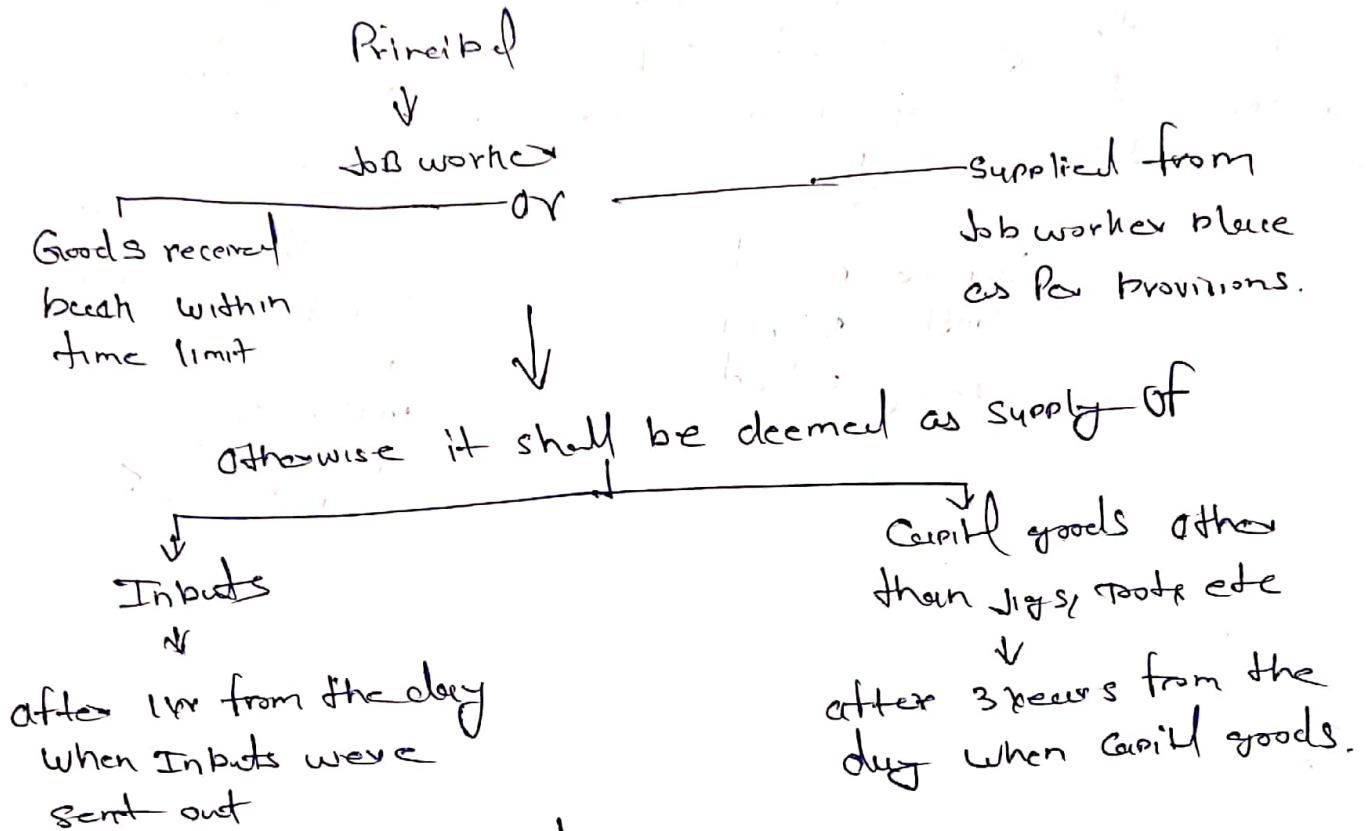 Principal
Job worker
or
Goods received
back within
time limit
Supplied from
Job worker place
as Per provisions.
Otherwise it shall be deemed as supply of
Inputs
after 1yr from the day
when Inputs were
sent out
Capital goods other
than Jigs, Tools etc
after 3 years from the
day when Capital goods.